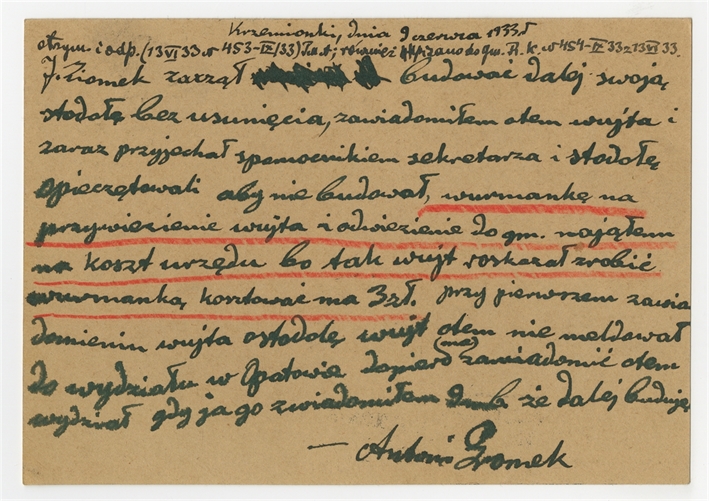 Krzemionki, dnia 9 czerwca 1933 r
otrzym i odp. (13 VI 33 N 453-IX/33) również napisano do gm. A. K. N 454-IX 33 z 13 VI 33.
J. Ziomek zarzął budować dalej swoją
stodołę bez usunięcia, zawiadomiłem otem wujta i
zaraz przyjechał spomocnikiem sekretarza i stodołę
opieczętowali aby nie budował, wurmankę na
przywiezienie wujta i odwiezienie do gm. nająłem
na koszt urzędu bo tak wujt roskazał zrobić
wurmanką kosztować ma 3 zł. przy pierwszem zawia
domieniu wujta ostodołę wujt otem nie meldował
do wydziału w Opatowie dopiero (ma) zawiadomić otem
wydział gdy ja go zwiadomiłem że dalej budują
— Antoni Ziomek